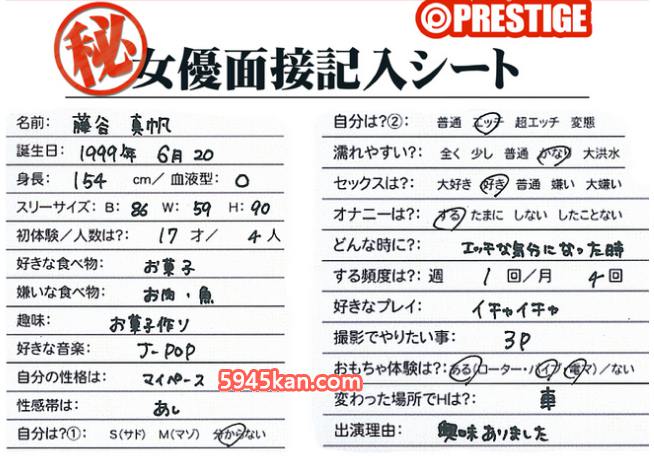 秘 女優面接記入シート
PRESTIGE
名前: 藤谷 真帆
誕生日: 1999年 6月 20
身長: 154 cm/血液型: O
スリーサイズ: B: 86 W: 59 H: 90
初体験/人数は?: 17才/ 4人
好きな食べ物: お菓子
嫌いな食べ物: お肉・魚
趣味: お菓子作り
好きな音楽: J-POP
自分の性格は: マイペース
性感帯は: あし
自分は?①: S(サド) M(マゾ) 分からない
自分は?②: 普通 エッチ 超エッチ 変態
濡れやすい?: 全く 少し 普通 かなり 大洪水
セックスは?: 大好き 好き 普通 嫌い 大嫌い
オナニーは?: する たまに しない したことない
どんな時に?: エッチな気分になった時
する頻度は?: 週 1 回/月 4 回
好きなプレイ: イチャイチャ
撮影でやりたい事: 3P
おもちゃ体験は?: ある(ローター・バイブ・電マ)/ない
変わった場所でHは?: 車
出演理由: 興味ありました
5945kan.com